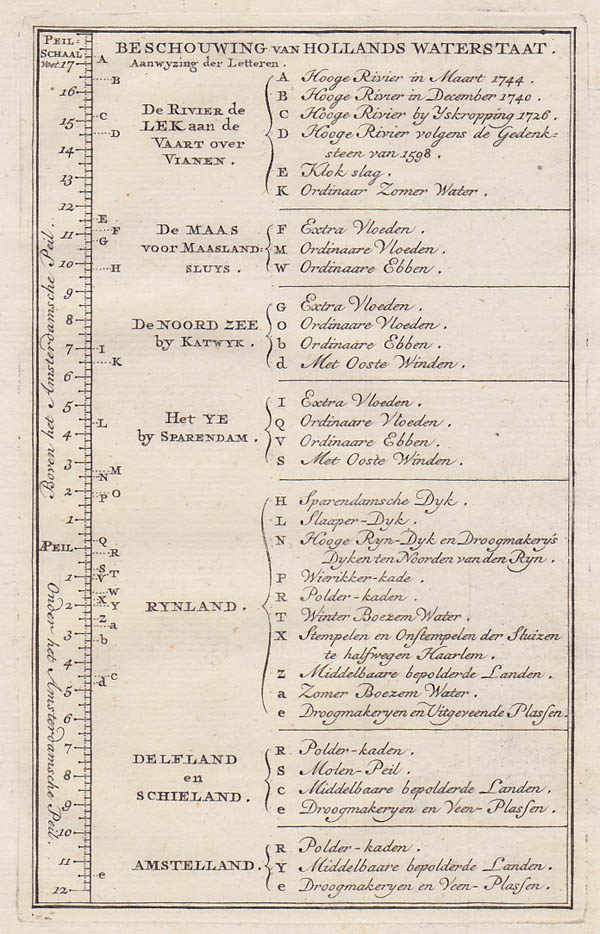 PEIL-
SCHAAL
voet. 17
16
15
14
13
12
11
10
9
8
7
6
5
4
3
2
1
A PEIL
1
2
3
4
5
6
7
8
9
10
11
12
Boven het Amsterdamsche Peil.
Onder het Amsterdamsche Peil.
A
B
C
D
E
F
G
H
I
K
L
M
N
O
P
Q
R
S
T
V
W
X
Y
Z
a
b
c
d
e
BESCHOUWING VAN HOLLANDS WATERSTAAT.
Aanwyzing der Letteren.
De RIVIER de
LEK aan de
VAART over
VIANEN.
A Hooge Rivier in Maart 1744.
B Hooge Rivier in December 1740.
C Hooge Rivier by Yskropping 1726.
D Hooge Rivier volgens de Gedenk-
steen van 1598.
E Klok slag.
K Ordinaar Zomer Water.
De MAAS
voor MAASLAND-
SLUYS.
F Extra Vloeden.
M Ordinaare Vloeden.
W Ordinaare Ebben.
De NOORD ZEE
by KATWYK.
G Extra Vloeden.
O Ordinaare Vloeden.
b Ordinaare Ebben.
d Met Ooste Winden.
Het YE
by SPARENDAM.
I Extra Vloeden.
Q Ordinaare Vloeden.
V Ordinaare Ebben.
S Met Ooste Winden.
RYNLAND.
H Sparendamsche Dyk.
L Slaaper-Dyk.
N Hooge Ryn-Dyk en Droogmakery's
Dyken ten Noorden van den Ryn.
P Wierikker-kade.
R Polder-kaden.
T Winter Boezem Water.
X Stempelen en Onstempelen der Sluizen
te halfwegen Haarlem.
Z Middelbaare bepolderde Landen.
a Zomer Boezem Water.
e Droogmakeryen en Uitgeveende Plassen.
DELFLAND
en
SCHIELAND.
R Polder-kaden.
S Molen-Peil.
c Middelbaare bepolderde Landen.
e Droogmakeryen en Veen-Plassen.
AMSTELLAND.
R Polder-kaden.
Y Middelbaare bepolderde Landen.
e Droogmakeryen en Veen-Plassen.